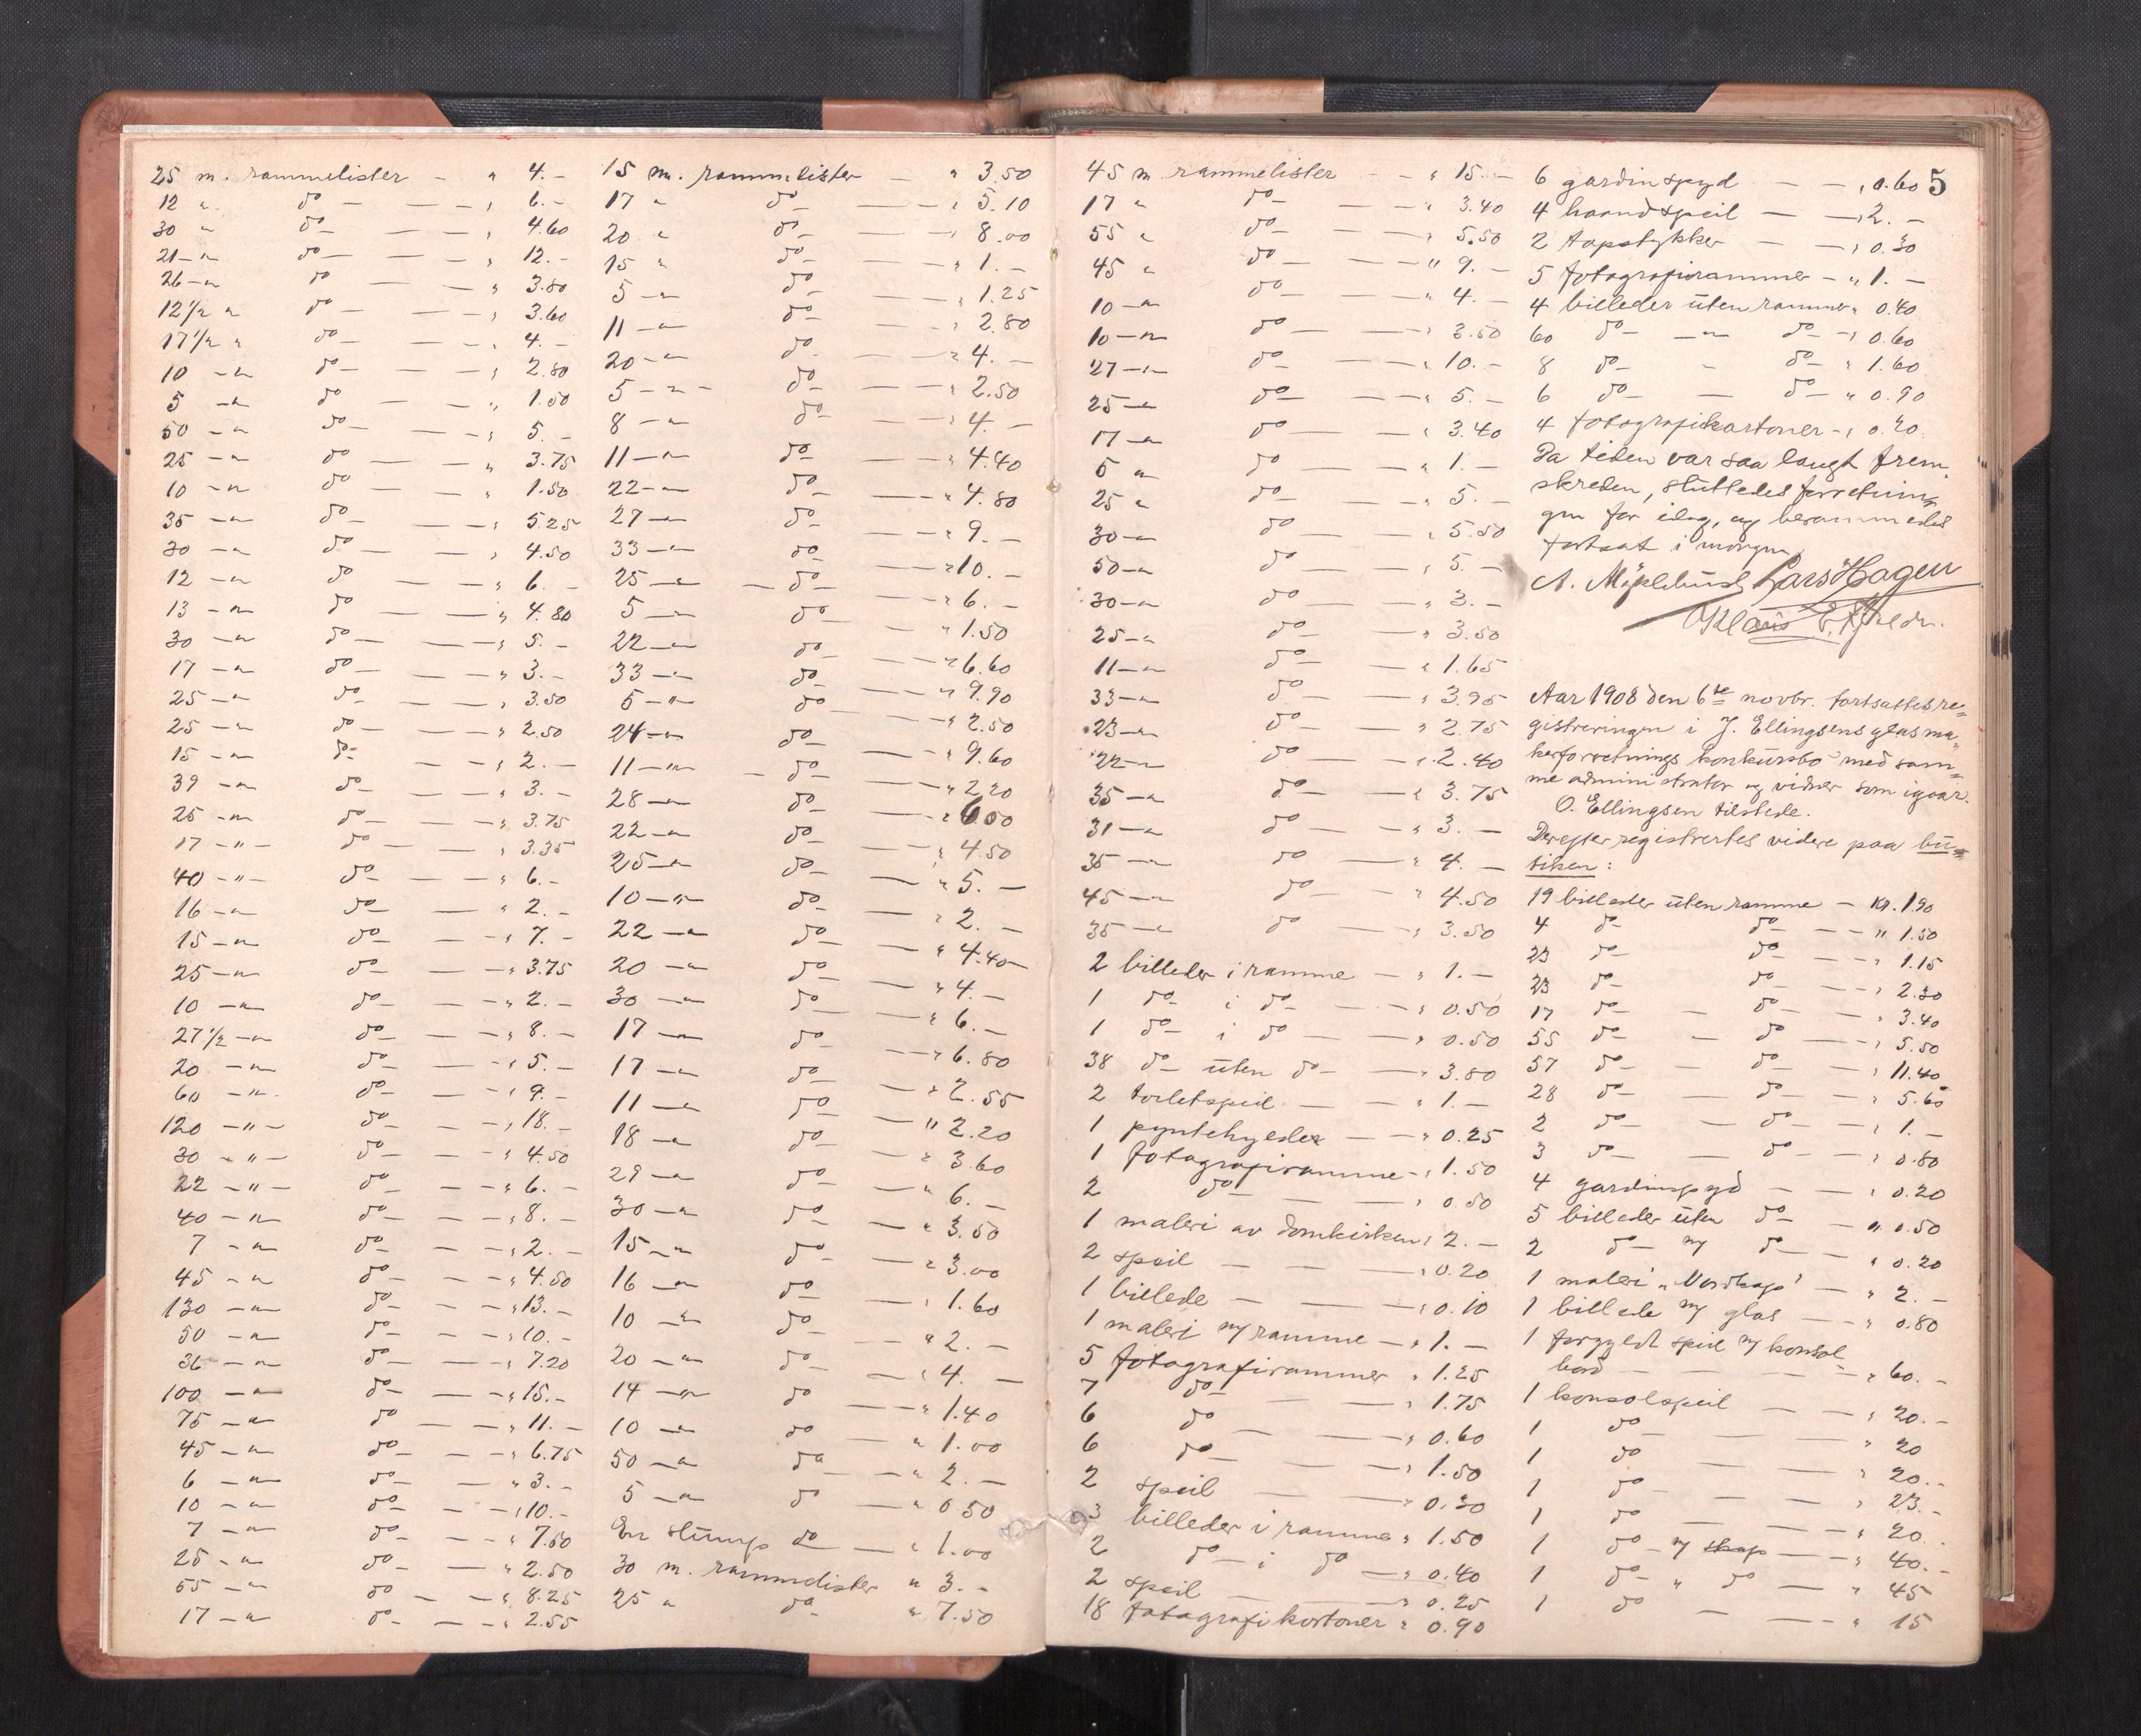 25 m. rammelister - " 4.-
12 " do - — " 6.-
30 " do - — " 4.60
21 -"- do - — " 12.-
26 -"- do — " 3.80
12½ " do - — " 3.60
17½ " do - — " 4.-
10 -"- do - — " 2.80
5 -"- do — " 1.50
50 -"- do - — " 5.-
25 -"- do — " 3.75
10 -"- do — " 1.50
35 -"- do - — " 5.25
30 -"- do - — " 4.50
12 -"- do — " 6.-
13 -"- do — " 4.80
30 -"- do - — " 5.-
17 -"- do - — " 3.-
25 -"- do - — " 3.50
25 -"- do - — " 2.50
15 -"- do - — " 2.-
39 -"- do - — " 3.-
25 -"- do - — " 3.75
17 -"- do - — " 3.35
40 -"- do - — " 6.-
16 -"- do - — " 2.-
15 -"- do - — " 7.-
25 -"- do - — " 3.75
10 -"- do - — " 2.-
27½ -"- do - — " 8.-
20 -"- do - — " 5.-
60 -"- do - — " 9.-
120 -"- do - — " 18.-
30 -"- do - — " 4.50
22 -"- do - — " 6.-
40 -"- do - — " 8.-
7 -"- do - — " 2.-
45 -"- do - — " 4.50
130 -"- do - — " 13.-
50 -"- do - — " 10.-
36 -"- do - — " 7.20
100 -"- do - — " 15.-
75 -"- do — " 11.-
45 -"- do - — " 6.75
6 -"- do - — " 3.-
10 -"- do - — " 10.-
7 -"- do - — " 7.50
25 -"- do - — " 2.50
55 -"- do - — " 8.25
17 -"- do - — " 2.55
15 m. rammelister — " 3.50
17 " do - — " 5.10
20 " do - — " 8.00
15 " do - — " 1.-
5 -"- do — " 1.25
11 -"- do - — " 2.80
20 -"- do - — " 4.-
5 -"- do - — " 2.50
8 -"- do - — " 4.-
11 -"- do - — " 4.40
22 -"- do - — " 4.80
27 -"- do - — " 9.-
33 -"- do — " 10.-
25 -"- do - — " 6.-
5 -"- do - — " 1.50
22 -"- do - — " 6.60
33 -"- do - — " 9.90
5 -"- do - — " 2.50
24 -"- do - — " 9.60
11 -"- do - — " 2.20
28 -"- do - — " 6.00
22 -"- do - — " 4.50
25 -"- do - — " 5.-
10 -"- do - — " 2.-
22 -"- do - — " 4.40
20 -"- do - — " 4.-
30 -"- do - — " 6.-
17 -"- do - — " 6.80
17 -"- do - — " 2.55
11 -"- do - — " 2.20
18 -"- do - — " 3.60
29 -"- do - — " 6.-
30 -"- do - — " 3.50
15 -"- do - — " 3.00
16 -"- do - — " 1.60
10 -"- do - — " 2.-
20 -"- do - — " 4.-
14 -"- do — " 1.40
10 -"- do — " 1.00
50 -"- do - — " 2.-
5 -"- do — " 0.50
En stump do — " 1.00
30 m. rammelister " 3.-
25 " do - " 7.50
5
45 m rammelister - - " 15.-
17 " do - — " 3.40
55 " do - — " 5.50
45 " do - — " 9.-
10 -"- do - — " 4.-
10 -"- do - — " 3.50
27 -"- do - — " 10.-
25 -"- do - — " 5.-
17 -"- do - — " 3.40
5 " do - — " 1.-
25 " do - — " 5.-
30 -"- do — " 5.50
50 -"- do - — " 5.-
30 -"- do - — " 3.-
25 -"- do - — " 3.50
11 -"- do - — " 1.65
33 -"- do - — " 3.95
23 -"- do - — " 2.75
22 -"- do - — " 2.40
35 -"- do - — " 3.75
31 -"- do - — " 3.-
35 -"- do — " 4.-
45 -"- do - — " 4.50
35 -"- do — " 3.50
2 billeder i ramme — " 1.-
1 do - i do - — " 0.50
1 do - i do — " 0.50
38 do - uten do - — " 3.80
2 toiletspeil — — " 1.-
1 — — " 0.25
1 fotografiramme - " 1.50
2 do - — " 0.50
1 maleri av domkirken " 2.-
2 speil — — " 0.20
1 billede — — " 0.10
1 maleri m/ ramme — " 1.-
5 fotografirammer " 1.25
7 do - — " 1.75
6 do — " 0.60
6 do - — " 1.50
2 speil — " 0.30
3 billeder i ramme " 1.50
2 do - i do — " 0.40
2 speil — " 0.25
18 fotografikortoner " 0.90
6 gardinspyd — — " 0.60
4 haandspeil — — " 2.-
2 topstykker — — " 0.30
5 fotografirammer - " 1.-
4 billeder uten ramme " 0.40
60 do - -"- do - " 0.60
8 do - " do - " 1.60
6 do - — do - " 0.90
4 fotografikartoner - " 0.40
Da tiden var saa langt frem-
skreden, sluttedes forretnin-
gen for idag, og berammedes
fortsat i morgen.
Lars Hagen
Aar 1908 den 6te novbr. fortsattes re=
gistreringen i J. Ellingsens glasma=
kerforretnings konkursbo med sam=
me administrator og vidner som igaar.
O. Ellingsen tilstede.
Derefter registrertes videre paa bu=
tiken:
19 billeder uten ramme — Kr. 1.90
4 do - do - — " 1.50
23 do - do - — " 1.15
23 do - do - — " 2.30
17 do - — do - — " 3.40
55 do - — do — " 5.50
57 do - — do - — " 11.40
28 do - — do - — " 5.60
2 do - — do - — " 1.-
3 do - — do - — " 0.80
4 gardinspyd — — " 0.20
5 billeder uten do - — " 0.50
2 do - m/ do - — " 0.20
1 maleri "Nordkap" — " 2.-
1 billede m/ glas — — " 0.80
1 forgyldt speil m/ konsol-
bord — — — " 60.-
1 konsolspeil — — " 20.-
1 do - — — " 20
1 do — — " 20.-
1 do - — — " 23.-
1 do — — " 20.
1 do - m/ skap — — " 40.-
1 do - " do — " 45
1 do — — " 15